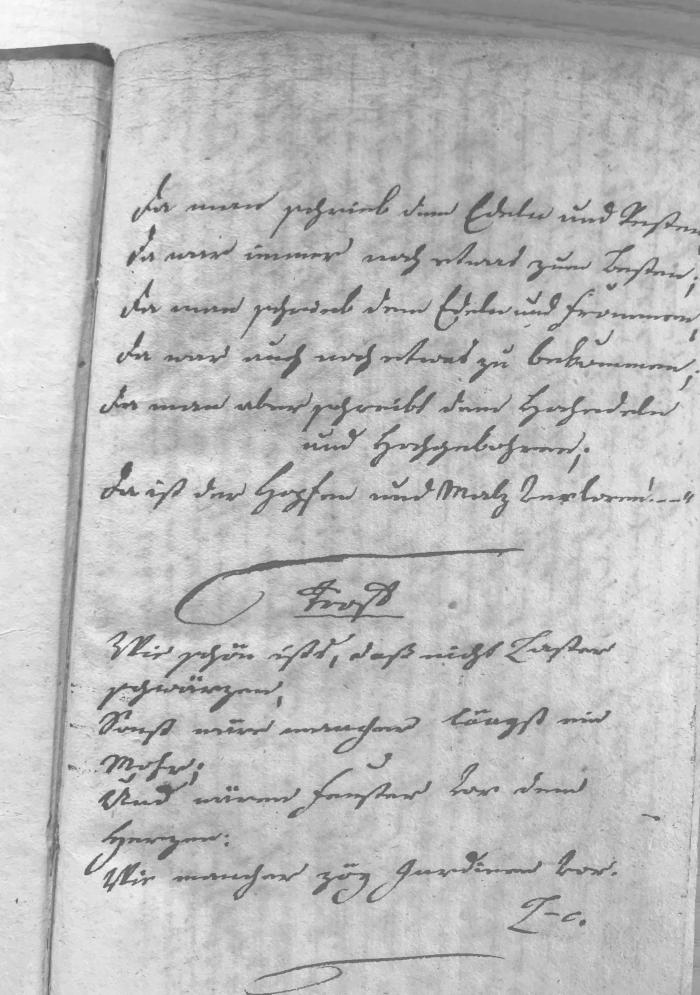 Da man schrieb dem Edeln und Vesten,
Da war immer noch etwas zum Besten;
Da man schrieb dem Edeln und frommen,
Da war auch noch etwas zu bekommen;
Da man aber schreibt dem Hochedeln
und Hochgebohren;
Da ist der Hopfen und Malz verloren! --"
Trost
Wie schön ists, daß nicht Laster
schwärzen,
Sonst wäre mancher längst ein
Mohr;
Und wären Fenster vor dem
Herzen:
Wie mancher zög Gardinen vor.
L-c.